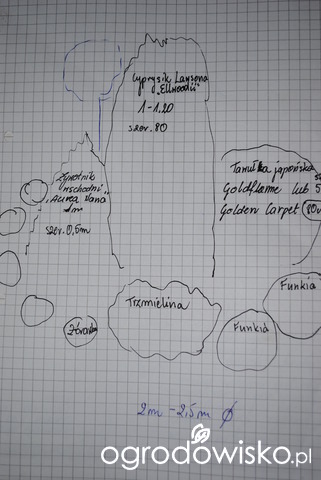 Cyprysik Lawsona
„Ellwoodii"
1-1,20
szer. 80
Żywotnik
wschodni
„Aurea Nana
1m
szer. 0,5m
Tawułka japońska
Goldflame lub
Golden Carpet 80
Trzmielina
Funkia
Funkia
Żurawka
2m - 2,5m Ø
ogrodowisko.pl